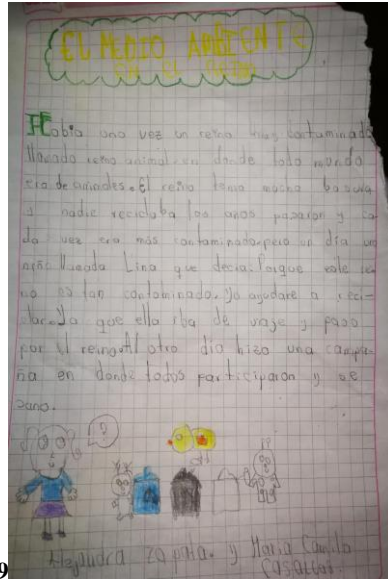 EL MEDIO AMBIENTE
EN EL
Habia una vez un reino muy contaminado
llamado reino animal en donde todo mundo
era de animales. El reino tenia mucha basura
y nadie reciclaba los años pasaron y ca
da vez era más contaminado. pero un día una
niña llamada Lina que decia: Porque este rei
no es tan contaminado. Yo ayudare a reci-
clar. Ya que ella iba de viaje y paso
por el reino. Al otro dia hizo una campa-
ña en donde todos participaron y se
sano.
?
Alejandra Zapata. y Maria Camila
9